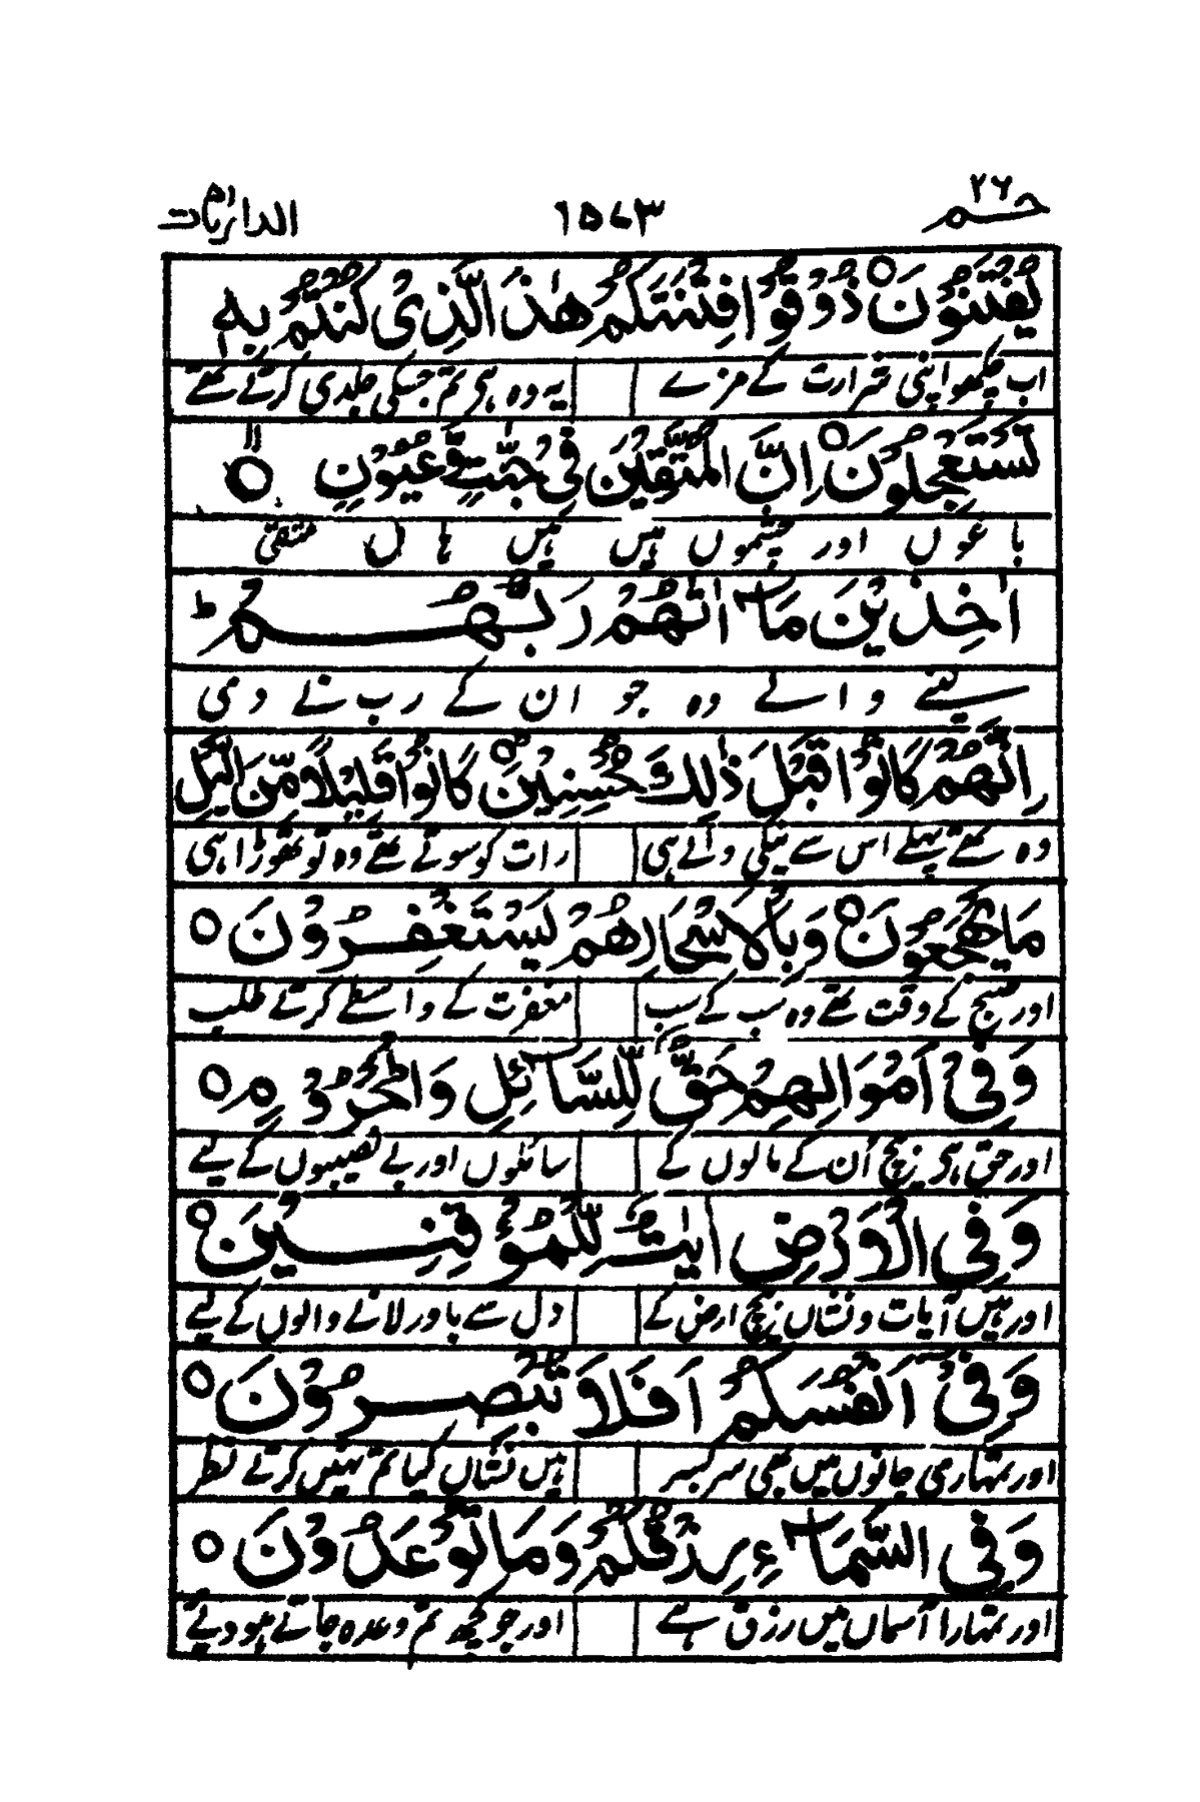 حٰمٓ ٢٦ ١٥٧٣ الذاریات ٥١
یُفْتَنُوْنَ ○ ذُوْقُوْا فِتْنَتَكُمْ هٰذَا الَّذِیْ كُنْتُمْ بِهٖ
اب چکھو اپنی شرارت کے مزے یہ وہ ہی تم جسکی جلدی کرتے تھے
تَسْتَعْجِلُوْنَ ○ اِنَّ الْمُتَّقِیْنَ فِیْ جَنّٰتٍ وَّعُیُوْنٍ ○
باغوں اور چشموں ہیں ہیں ہاں متقی
اٰخِذِیْنَ مَاۤ اٰتٰىهُمْ رَبُّهُمْ ط
لینے والے وہ جو ان کے رب نے دی
اِنَّهُمْ كَانُوْا قَبْلَ ذٰلِكَ مُحْسِنِیْنَ ○ كَانُوْا قَلِیْلًا مِّنَ الَّیْلِ
وہ تھے پہلے اس سے نیکی والے ہی رات کو سوتے تھے وہ تو تھوڑا ہی
مَا یَهْجَعُوْنَ ○ وَبِالْاَسْحَارِ هُمْ یَسْتَغْفِرُوْنَ ○
اور صبح کے وقت تھے وہ سب کے سب مغفرت کے واسطے کرتے طلب
وَفِیْۤ اَمْوَالِهِمْ حَقٌّ لِّلسَّآئِلِ وَالْمَحْرُوْمِ ○
اور حق ہی بیچ اُن کے مالوں کے سائلوں اور بے نصیبوں کے لیے
وَفِی الْاَرْضِ اٰیٰتٌ لِّلْمُوْقِنِیْنَ ○
اور ہیں آیات و نشاں بیچ ارض کے دل سے باور لانے والوں کے لیے
وَفِیْۤ اَنْفُسِكُمْ اَفَلَا تُبْصِرُوْنَ ○
اور تمہاری جانوں میں بھی سر بسر ہیں نشاں کیا تم نہیں کرتے نظر
وَفِی السَّمَآءِ رِزْقُكُمْ وَمَا تُوْعَدُوْنَ ○
اور تمہارا آسماں میں رزق ہے اور جو کچھ تم وعدہ جاتے ہو دیئے